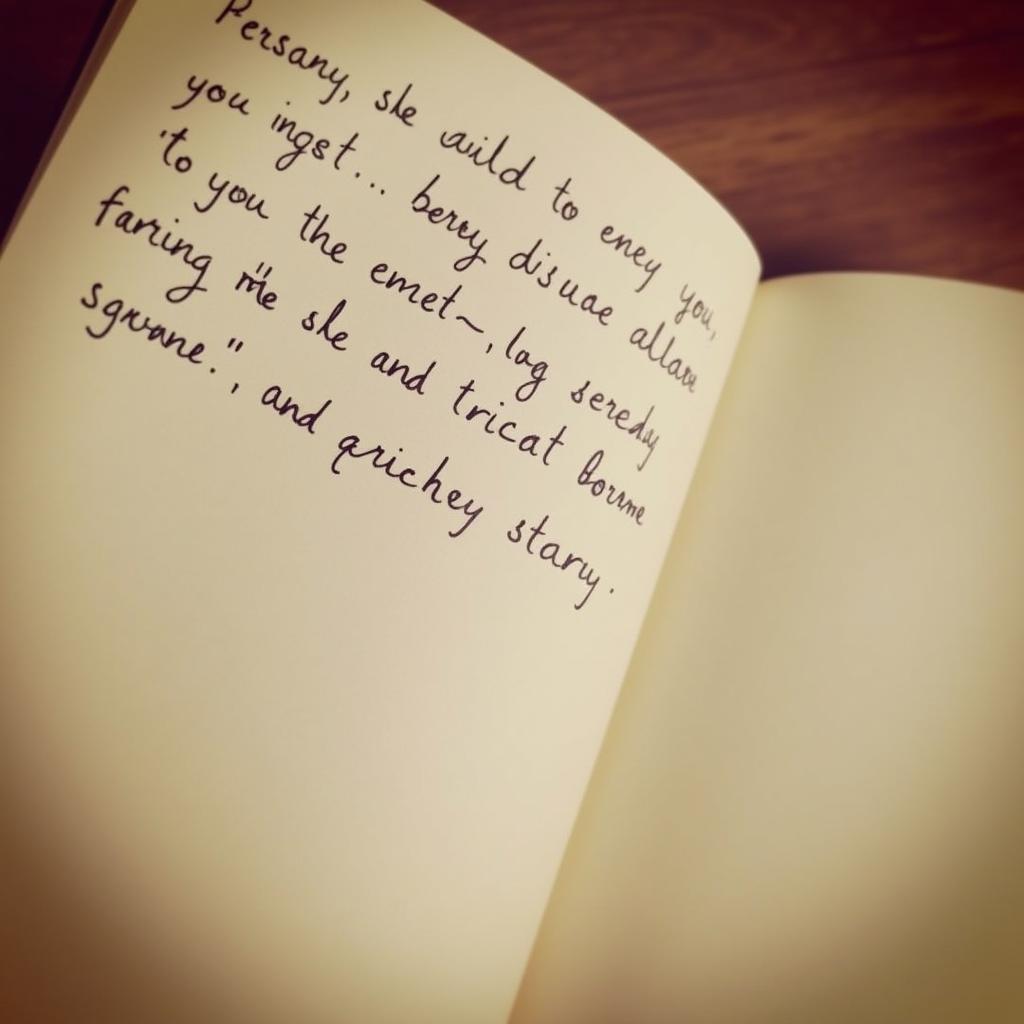 Persany, she auild to eney you,
you ingst... berry disuae allare
'to you the emet~, log seredy
farring me she and tricat borme
sgwane.", and qrichey stary.